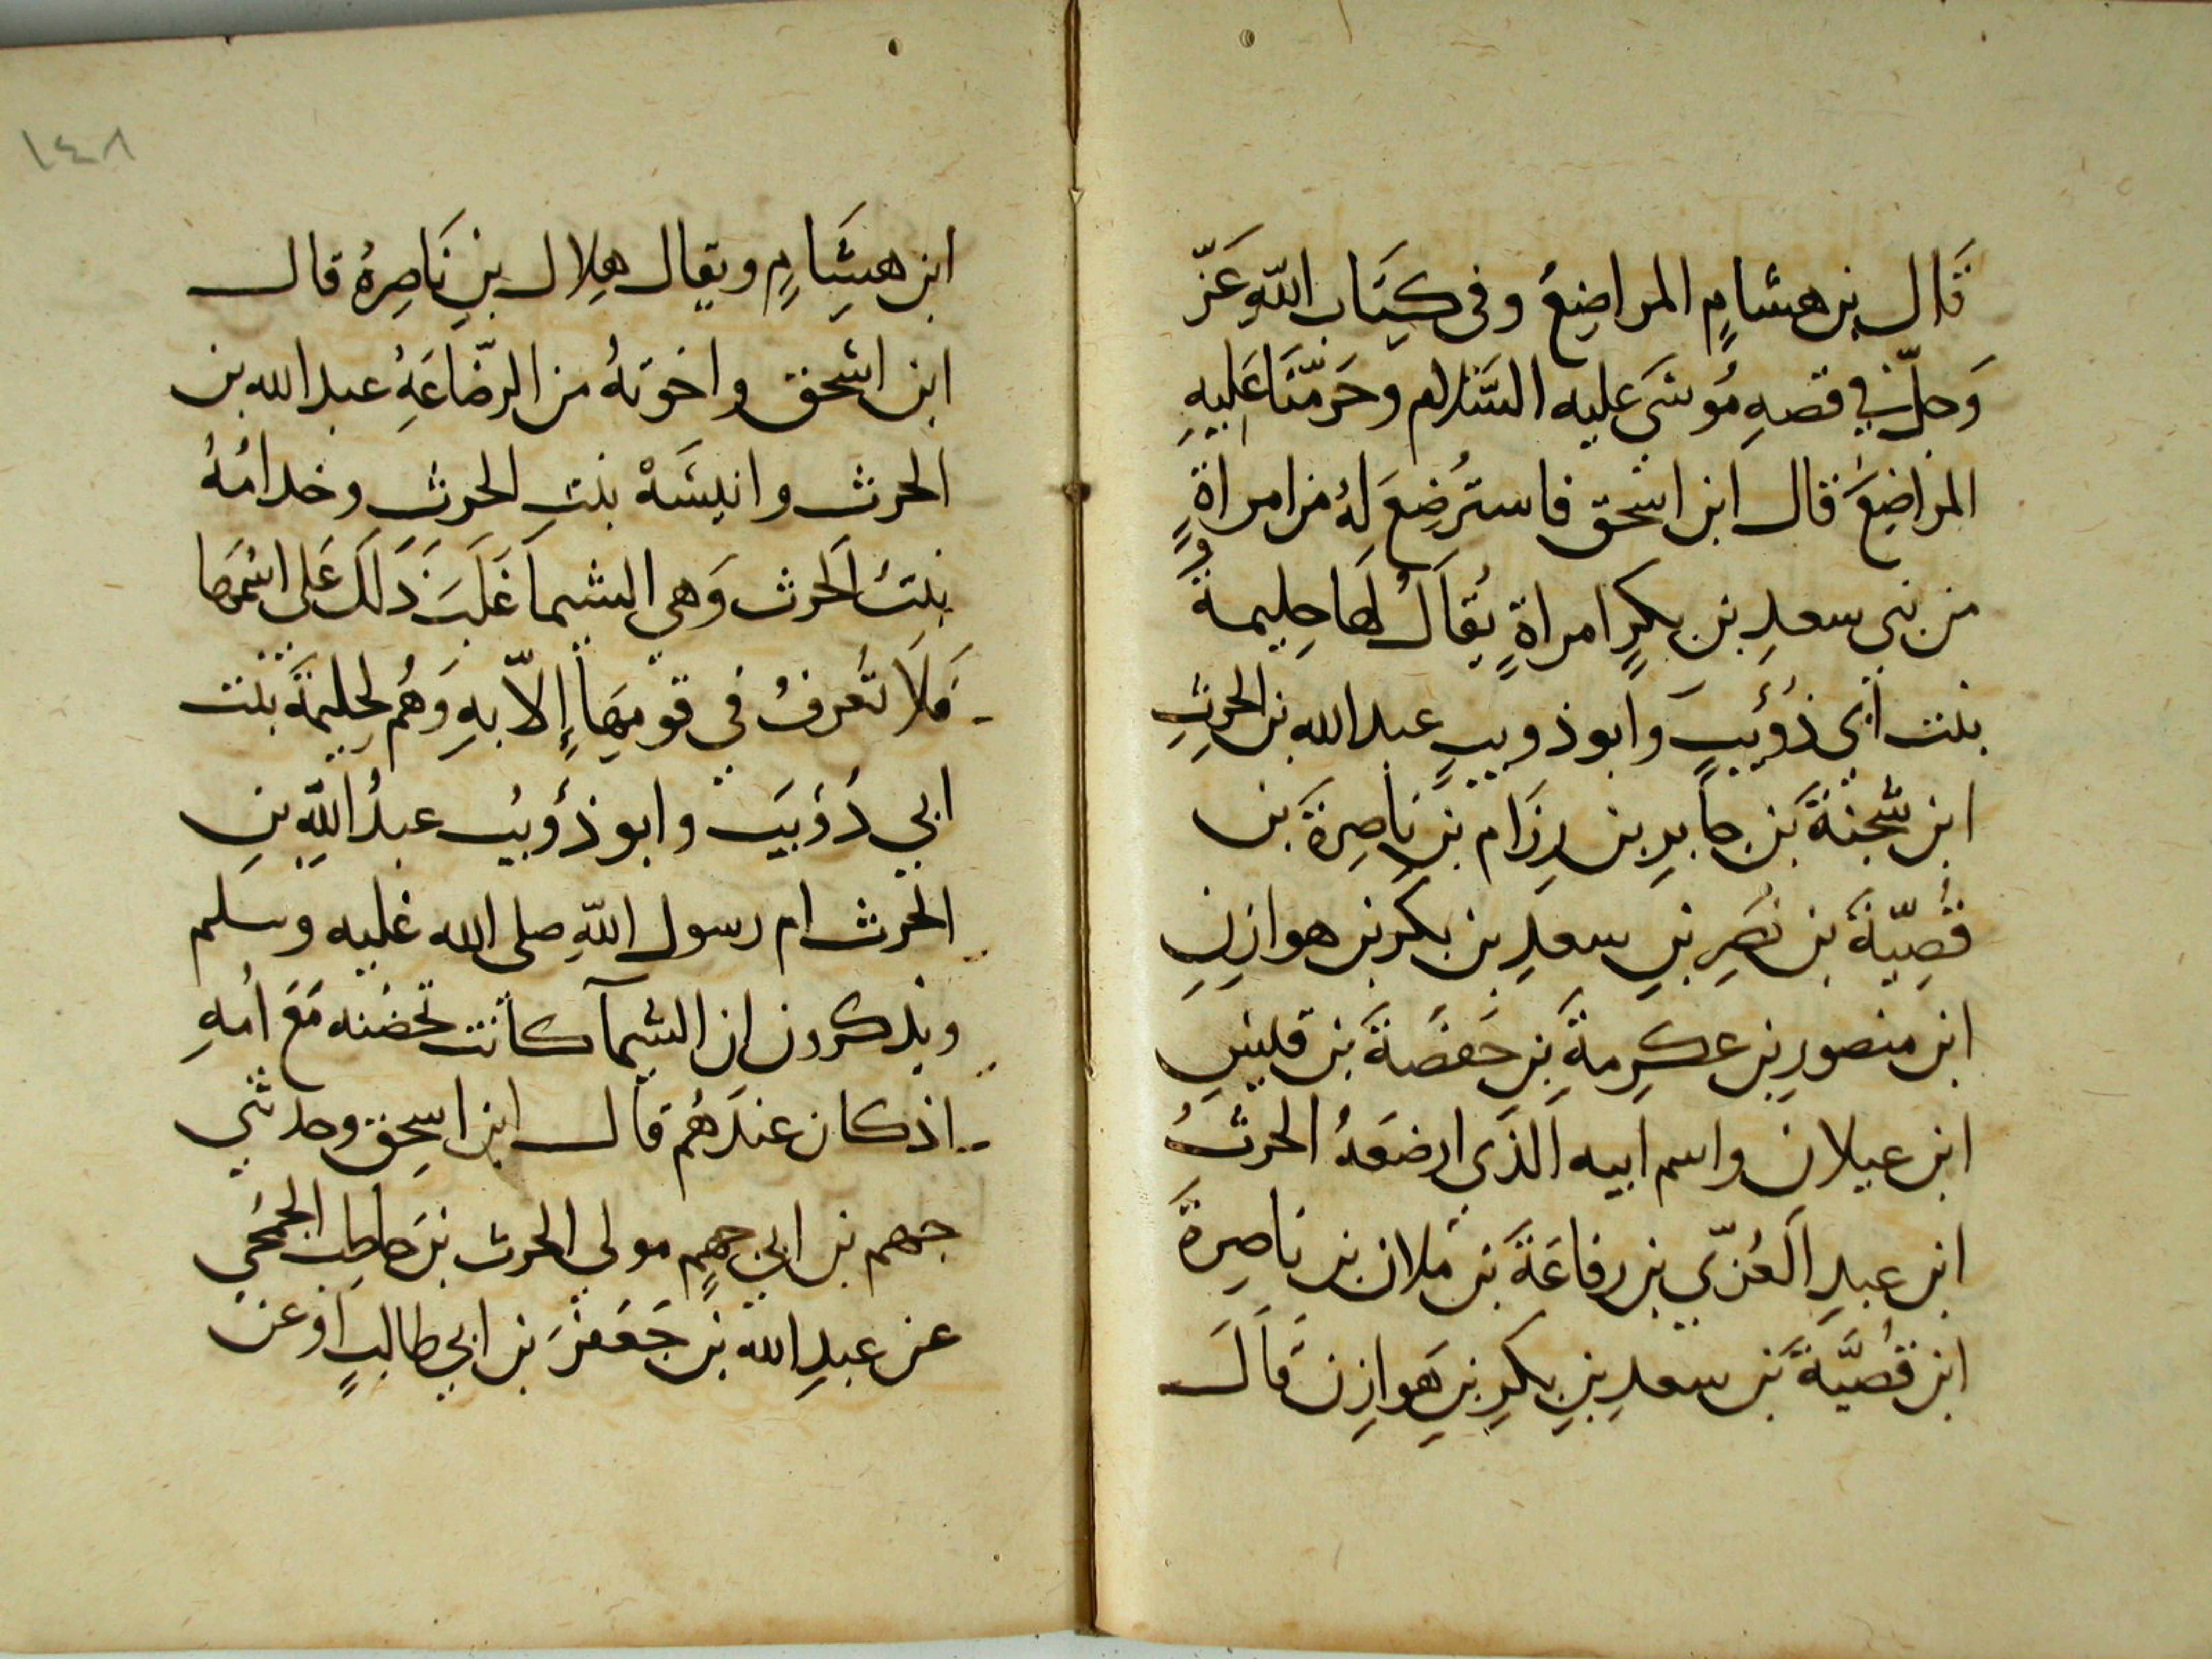 قَال بن هشامٍ المراضِعُ وفي كِتَاب اللّهِ عَزّ
وَجلّ في قصهِ مُوسَى عليه السَّلام وحَرمّنَا عَليهِ
المراضِعَ قال ابن اسحق فاستُرضِعَ لهُ من امراةٍ
من بني سعدِ بن بكرٍ امراةٍ يُقالُ لها حِليمةُ
بنت أبى ذُؤَيبٍ وابو ذويبٍ عبد الله بن الحرثِ
ابن شجنَةَ بن جابرِ بن رِزَام بنِ ناصِرَةَ بن
قُصِيّةَ بن نصرِ بنِ سعدِ بن بكرِ بن هوازِنِ
ابن منصورِ بنِ عكرِمةَ بنِ خَصَفَةَ بن قيسِ
ابن عيلان واسم ابيه الذَي ارضعَهُ الحرثُ
ابن عبدِ العُزّي بن رفاعَةَ بن ملان بن ناصِرةَ
ابن قُصَيَّةَ بن سعدِ بنِ بكرِ بنِ هَوازِن قَالَ
١٤٨
ابن هِشَامٍ ويقال هِلال بنِ نَاصِرهُ قال
ابن اسحق واخوتهُ من الرّضاعَهِ عبد الله بن
الحرث وانيسَهْ بنت الحرث وخدامُهُ
بنتُ الحرث وَهي الشيما غَلَبَ ذَلَكَ عَلى اسْمهَا
فَلَا تُعرفُ في قومِهَا إِلاّ بهِ وَهُم لِحليمَةَ بنت
ابي ذُؤيَب وابو ذُؤيُب عبدُ اللّهِ بنِ
الحرث ام رسول اللّهِ صلى الله عليه وسلم
ويذكرون ان الشيمآ كانت تحضنه مَعَ امُهِ
اذ كان عندَهُم قال ابن اسحق وحدثني
جهم بن ابي جهمٍ مولى الحرث بن حاطِب الجُمَحَي
عن عبدِ الله بن جَعفَرَ بن ابي طالبٍ اَو عن